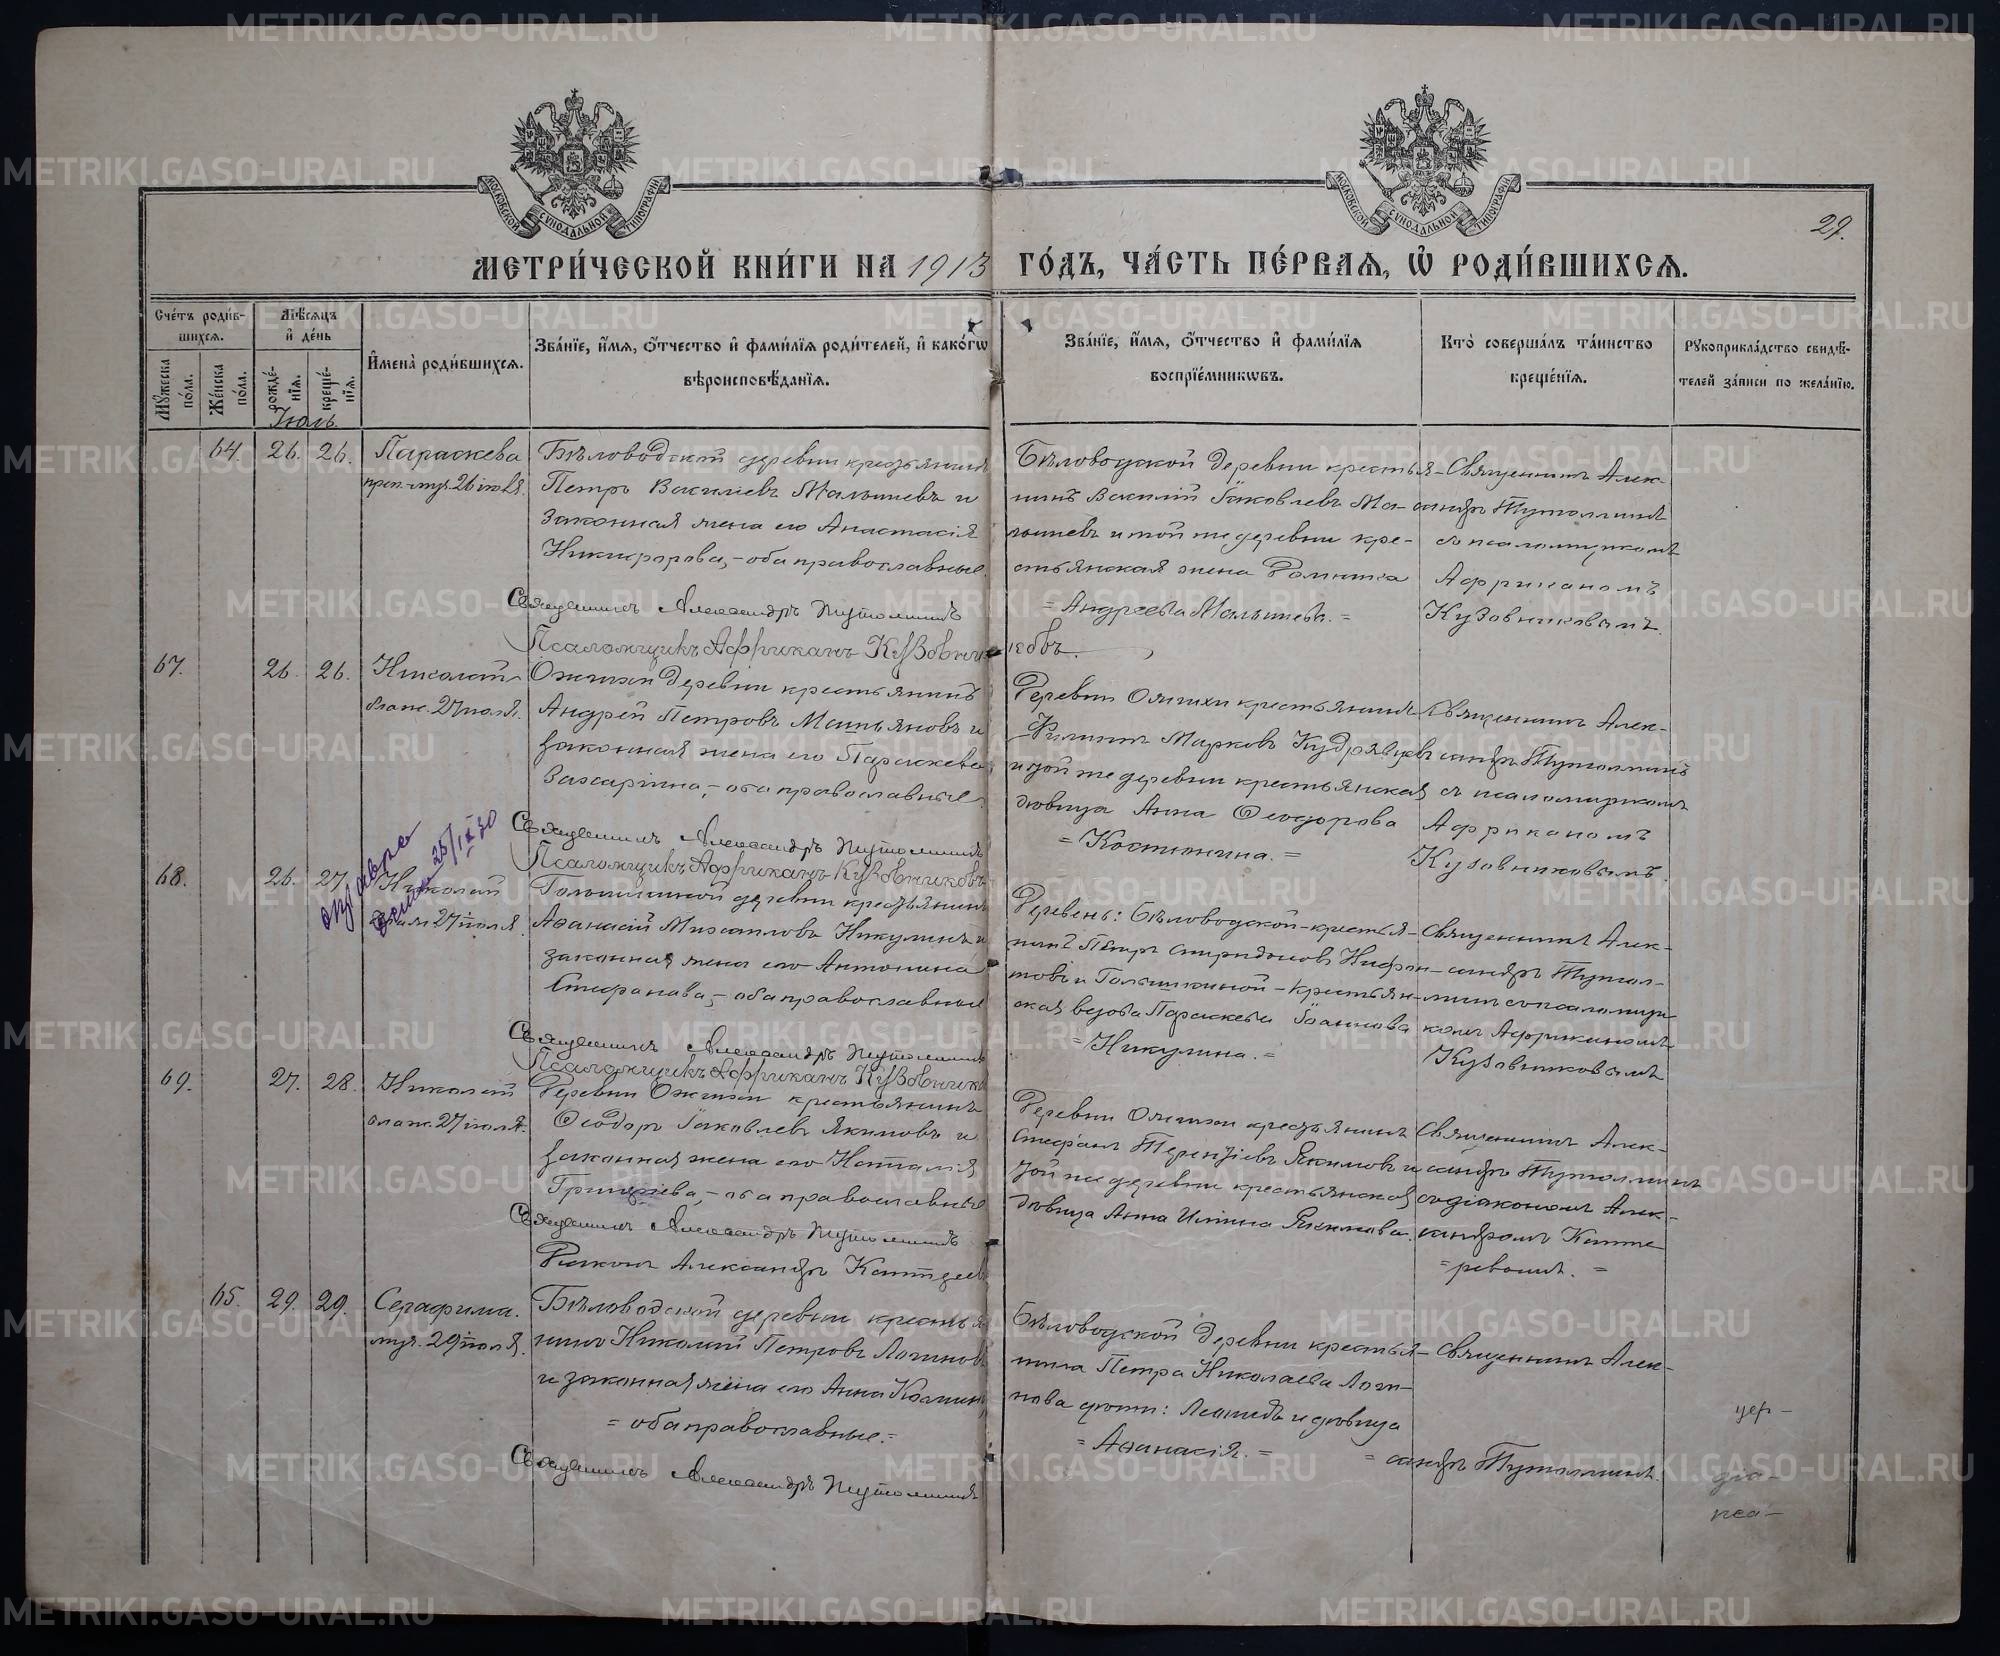 МОСКОВСКОЙ СѴНОДАЛЬНОЙ ТИПОГРАФІИ
МОСКОВСКОЙ СѴНОДАЛЬНОЙ ТИПОГРАФІИ
29.
МЕТРИ́ЧЕСКОЙ КНИ́ГИ НА 1913 ГО́ДЪ, ЧА́СТЬ ПЕ́РВАѦ, Ѽ РОДИ́ВШИХСѦ.
Сче́тъ роди́вшихсѧ.
Мꙋжеска по́ла.
Же́нска по́ла.
Мѣ́сѧцъ и҆ де́нь
рожде́нїѧ.
креще́нїѧ.
И҆мена̀ роди́вшихсѧ.
Зва́нїе, и҆́мѧ, о҆́тчество и҆ фами́лїѧ роди́телей, и҆ како́гѡ вѣроисповѣ́данїѧ.
Зва́нїе, и҆́мѧ, о҆́тчество и҆ фами́лїѧ воспрїе́мникѡвъ.
Кто̀ соверша́лъ та́инство креще́нїѧ.
Рꙋкоприкла́дство свидѣ́телей за́писи по жела́нїю.
Іюль.
64. 26. 26. Параскева
преп.-муч. 26 іюля.
Бѣловодской деревни крестьянинъ
Петръ Василіевъ Малышевъ и
законная жена его Анастасія
Никифорова,- оба православные.
Священникъ Александръ Тутолминъ
Псаломщикъ Африканъ Кузовниковъ.
Бѣловодской деревни крестья-
нинъ Василій Іаковлевъ Ма-
лышевъ и той же деревни кре-
стьянская жена
= Андреева Малышева. =
Священникъ Алек-
сандръ Тутолминъ
съ псаломщикомъ
Африканомъ
Кузовниковымъ.
67. 26. 26. Николай
блаж. 27 іюля.
деревни крестьянинъ
Андрей Петровъ и
законная жена его Параскева
Захаріина,- оба православные.
Священникъ Александръ Тутолминъ
Псаломщикъ Африканъ Кузовниковъ
Деревни крестьянинъ
Филиппъ Марковъ Кудрявцевъ
и той же деревни крестьянская
дѣвица Анна Ѳеодорова
= Костюнина. =
Священникъ Алек-
сандръ Тутолминъ
съ псаломщикомъ
Африканомъ
Кузовниковымъ.
68. 26. 27. Николай
блаж. 27 іюля.
25/IX 30
деревни крестьянинъ
Аѳанасій Михаиловъ Никулинъ и
законная жена его Антонина
Стефанова,- оба православные
Священникъ Александръ Тутолминъ
Псаломщикъ Африканъ Кузовников
Деревень: Бѣловодской-крестья-
нинъ Петръ Спиридоновъ Нифон-
товъ и - крестьян-
ская вдова Параскева Іоаннова
= Никулина. =
Священникъ Алек-
сандръ Тутол-
минъ съ псаломщи-
комъ Африканомъ
Кузовниковымъ
69. 27. 28. Николай
блаж. 27 іюля.
Деревни крестьянинъ
Ѳеодоръ Іаковлевъ Якимовъ и
законная жена его Наталія
Григоріева,- оба православные
Священникъ Александръ Тутолминъ
Діаконъ Александръ
Деревни крестьянинъ
Стефанъ Терентіевъ Якимовъ и
той же деревни крестьянская
дѣвица Анна Ильина Якимова.
Священникъ Алек-
сандръ Тутолминъ
съ діакономъ Алек-
сандромъ
65. 29. 29. Серафима.
муч. 29 іюля.
Бѣловодской деревни крестья-
нинъ Николай Петровъ Логиновъ
и законная жена его Анна
= оба православные. =
Священникъ Александръ Тутолминъ
Бѣловодской деревни крестья-
нина Петра Николаева Логи-
нова дѣти: и дѣвица
= Аѳанасія. =
Священникъ Алек-
= сандръ Тутолминъ.
цер-
діа-
пса-
METRIKI.GASO-URAL.RU